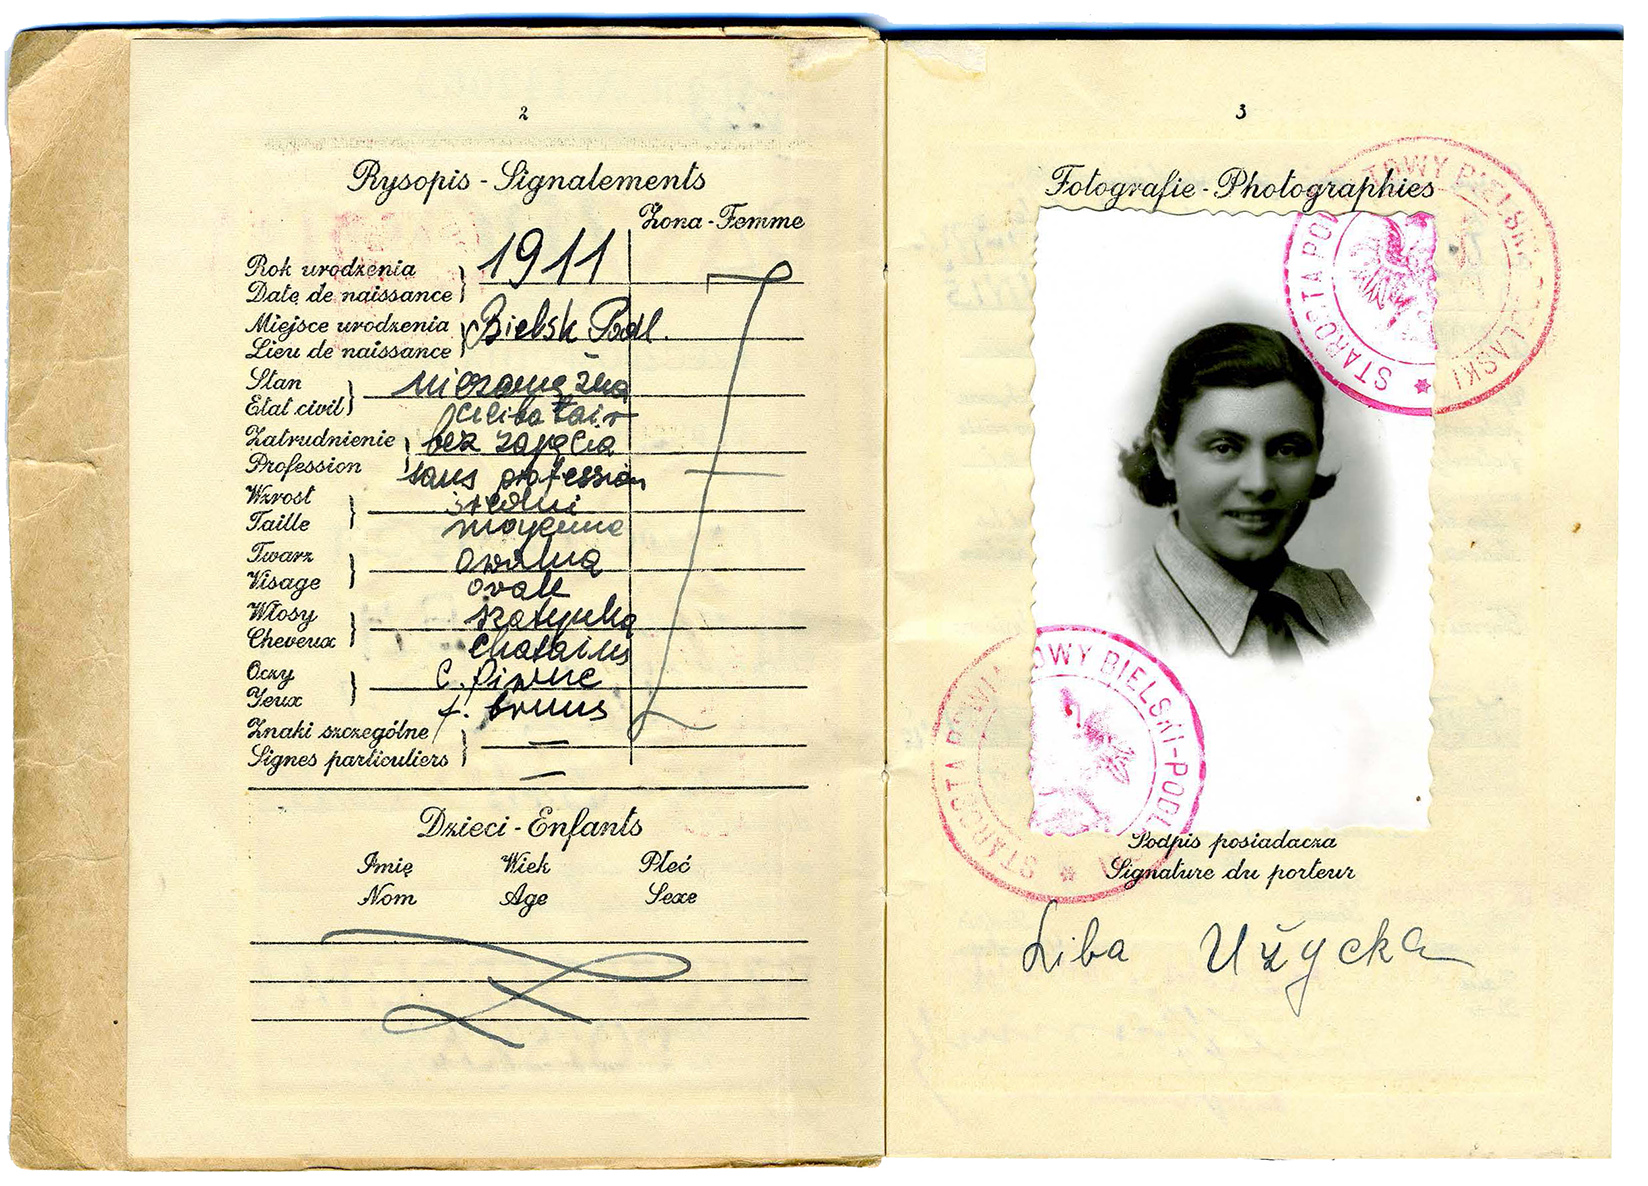 2
Rysopis - Signalements
Żona - Femme
Rok urodzenia
Date de naissance
1911
Miejsce urodzenia
Lieu de naissance
Bielsk Podl.
Stan
Etat civil
niezamężna
celibatair
Zatrudnienie
Profession
bez zajęcia
sans profession
Wzrost
Taille
średni
moyenne
Twarz
Visage
owalna
ovale
Włosy
Cheveux
szatynka
chatains
Oczy
Yeux
c. piwne
f. bruns
Znaki szczególne
Signes particuliers
—
—
Dzieci - Enfants
Imię Wiek Płeć
Nom Age Sexe
3
Fotografie - Photographies
STAROSTA POWIATOWY BIELSKI-PODLASKI
STAROSTA POWIATOWY BIELSKI-PODLASKI
Podpis posiadacza
Signature du porteur
Liba Użycka